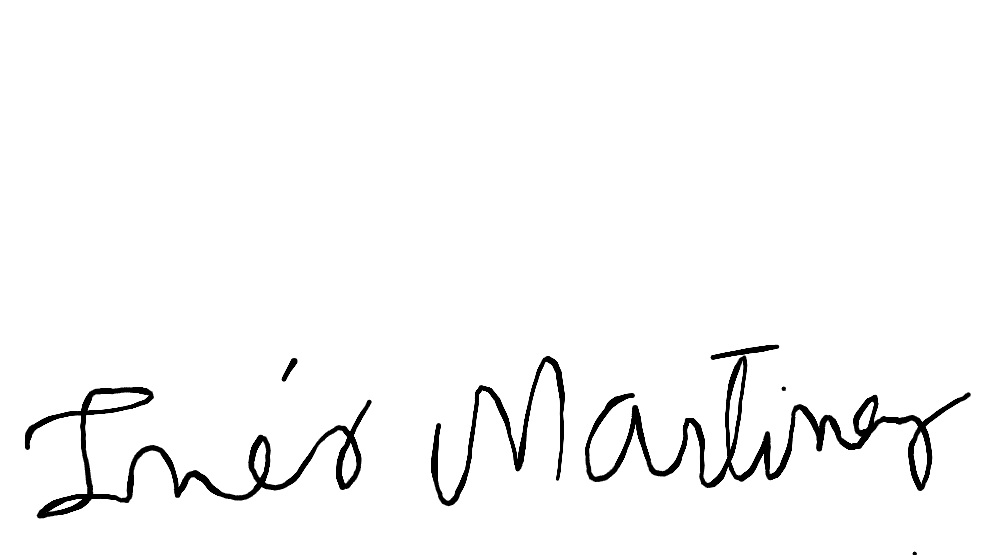 Inés Martinez